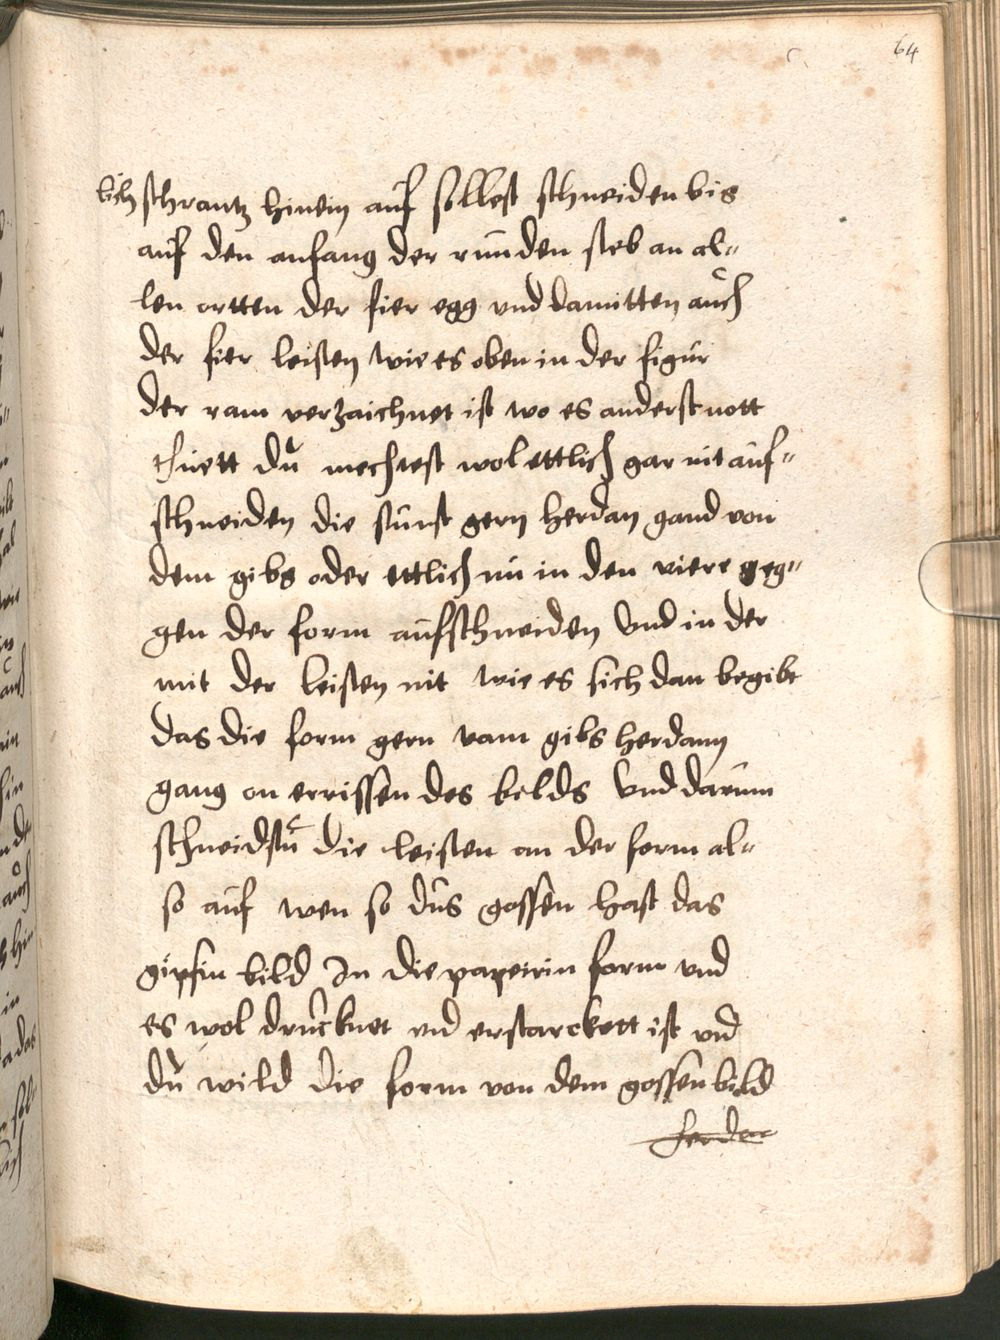 64
lich schrantz hinein auf sollest schneiden bis
auf den anfang der runden steb an al-
len ortten der fier egg und damitten auch
der fier leisten wie es oben in der figur
der ram verzaichnet ist wo es anderst nott
thuett du mechtest wol ettlich gar nit auf-
schneiden die sunst gern herdan gand von
dem gibs oder ettlich nu in den viere geg-
gen der form aufschneiden und in der
mit der leisten nit wie es sich dan begibt
das die form gern vam gibs herdann
gang on errissen des bilds und darum
schneidstu die leisten an der form al-
so auf wen so dus gossen hast das
gipsin bild In die papeirin form und
es wol drucknet und erstarckett ist und
du wild die form von dem gossen bild
herdan